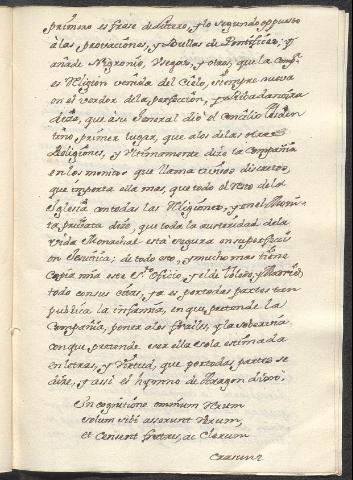 primero es frase de Lutero, y lo segundo oppuesto
à las provaciones, y Bullas de Pontifices; y
añade Nigronio, Vegoro, y otros, que la Comp.ª
es Religion venida del Cielo, siempre nueva
en el verdor de la perfeccion, y
dizo, que à su General dio el Concilio
tino, primer lugar, que a los de las otras
Religiones, y Ultimamente dize la Compañia
en los monitos que llama unidos discretos,
que importa ella mas, que todo el resto de la
Iglesia con todas las Religiones, y en el
privata dize, que toda la austeridad de la
vida Monachal està segura en su perfeccion
de todo esto, y mucho mas tiene
copia mia este S.to Oficio, y el de Toledo, y Madrid,
todo con sus citas, ya es por todas partes tan
publica la infamia, en que pretende la
Compañia, poner a los frailes, y la sobervia
con que pretende ser ella sola estimada
en letras, y Virtud, que por todas partes se
dize, y assi el hymno de Aragon dize:
In cognitione omnium rerum
solum sibi asserunt Verum,
et Censent fratres, ac Clerum